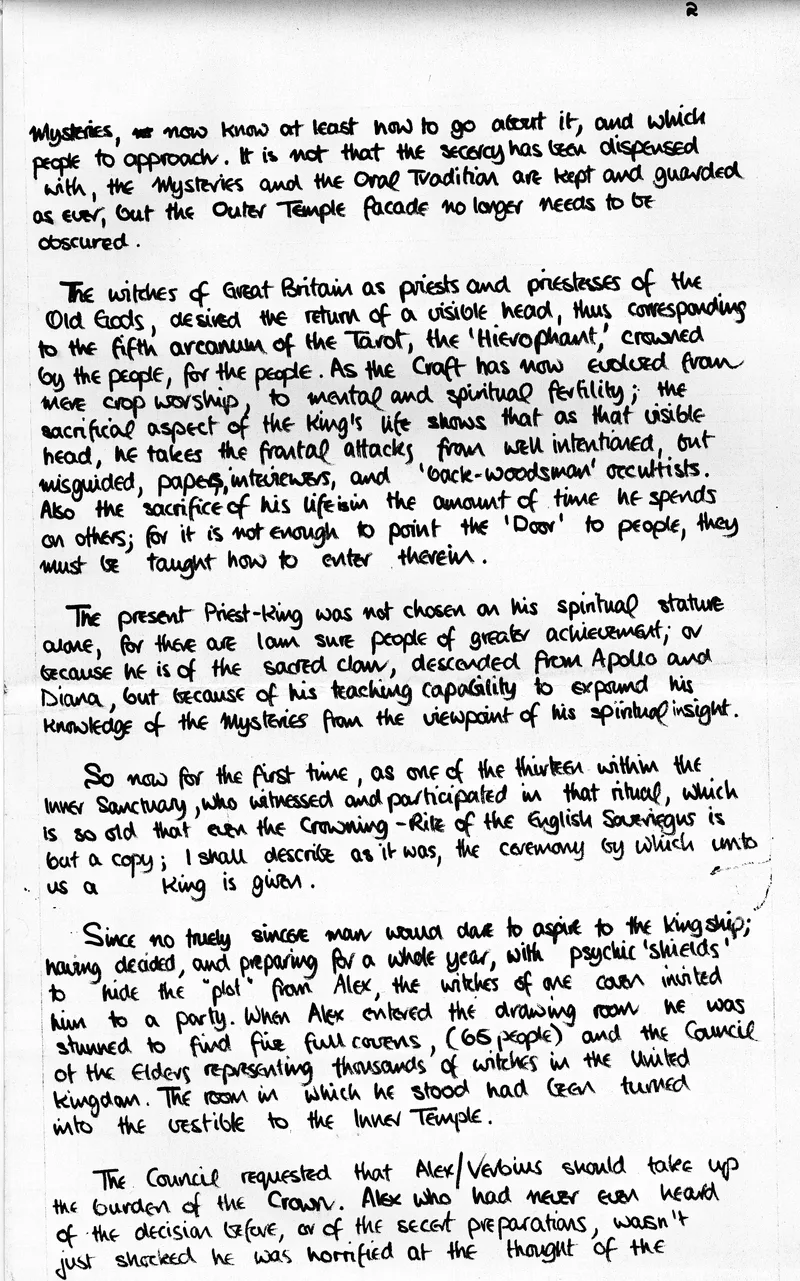 2
Mysteries, now know at least how to go about it, and which
people to approach. It is not that the secercy has been dispensed
with, the Mysteries and the Oral Tradition are kept and guarded
as ever, but the Outer Temple facade no longer needs to be
obscured.
The witches of Great Britain as priests and priestesses of the
Old Gods, desired the return of a visible head, thus corresponding
to the fifth arcanum of the Tarot, the 'Hierophant,' crowned
by the people, for the people. As the Craft has now evolved from
mere crop worship, to mental and spiritual fertility; the
sacrifical aspect of the King's life shows that as that visible
head, he takes the frontal attacks from well intentioned, but
misguided, papers, interviewers, and 'back-woodsman' occultists.
Also the sacrifice of his life is in the amount of time he spends
on others; for it is not enough to point the 'Door' to people, they
must be taught how to enter therein.
The present Priest-King was not chosen on his spiritual stature
alone, for there are I am sure people of greater achievement; or
because he is of the sacred clan, descended from Apollo and
Diana, but because of his teaching capability to expound his
knowledge of the Mysteries from the viewpoint of his spiritual insight.
So now for the first time, as one of the thirteen within the
Inner Sanctuary, who witnessed and participated in that ritual, which
is so old that even the Crowning-Rite of the English Soveriegns is
but a copy; I shall describe as it was, the ceremony by which unto
us a King is given.
Since no truely sincere man would dare to aspire to the kingship;
having decided, and preparing for a whole year, with psychic 'shields'
to hide the "plot" from Alex, the witches of one coven invited
him to a party. When Alex entered the drawing room he was
stunned to find five full covens, (65 people) and the Council
of the Elders representing thousands of witches in the United
Kingdom. The room in which he stood had been turned
into the vestible to the Inner Temple.
The Council requested that Alex/Verbius should take up
the burden of the Crown. Alex who had never even heard
of the decision before, or of the secert preparations, wasn't
just shocked he was horrified at the thought of the